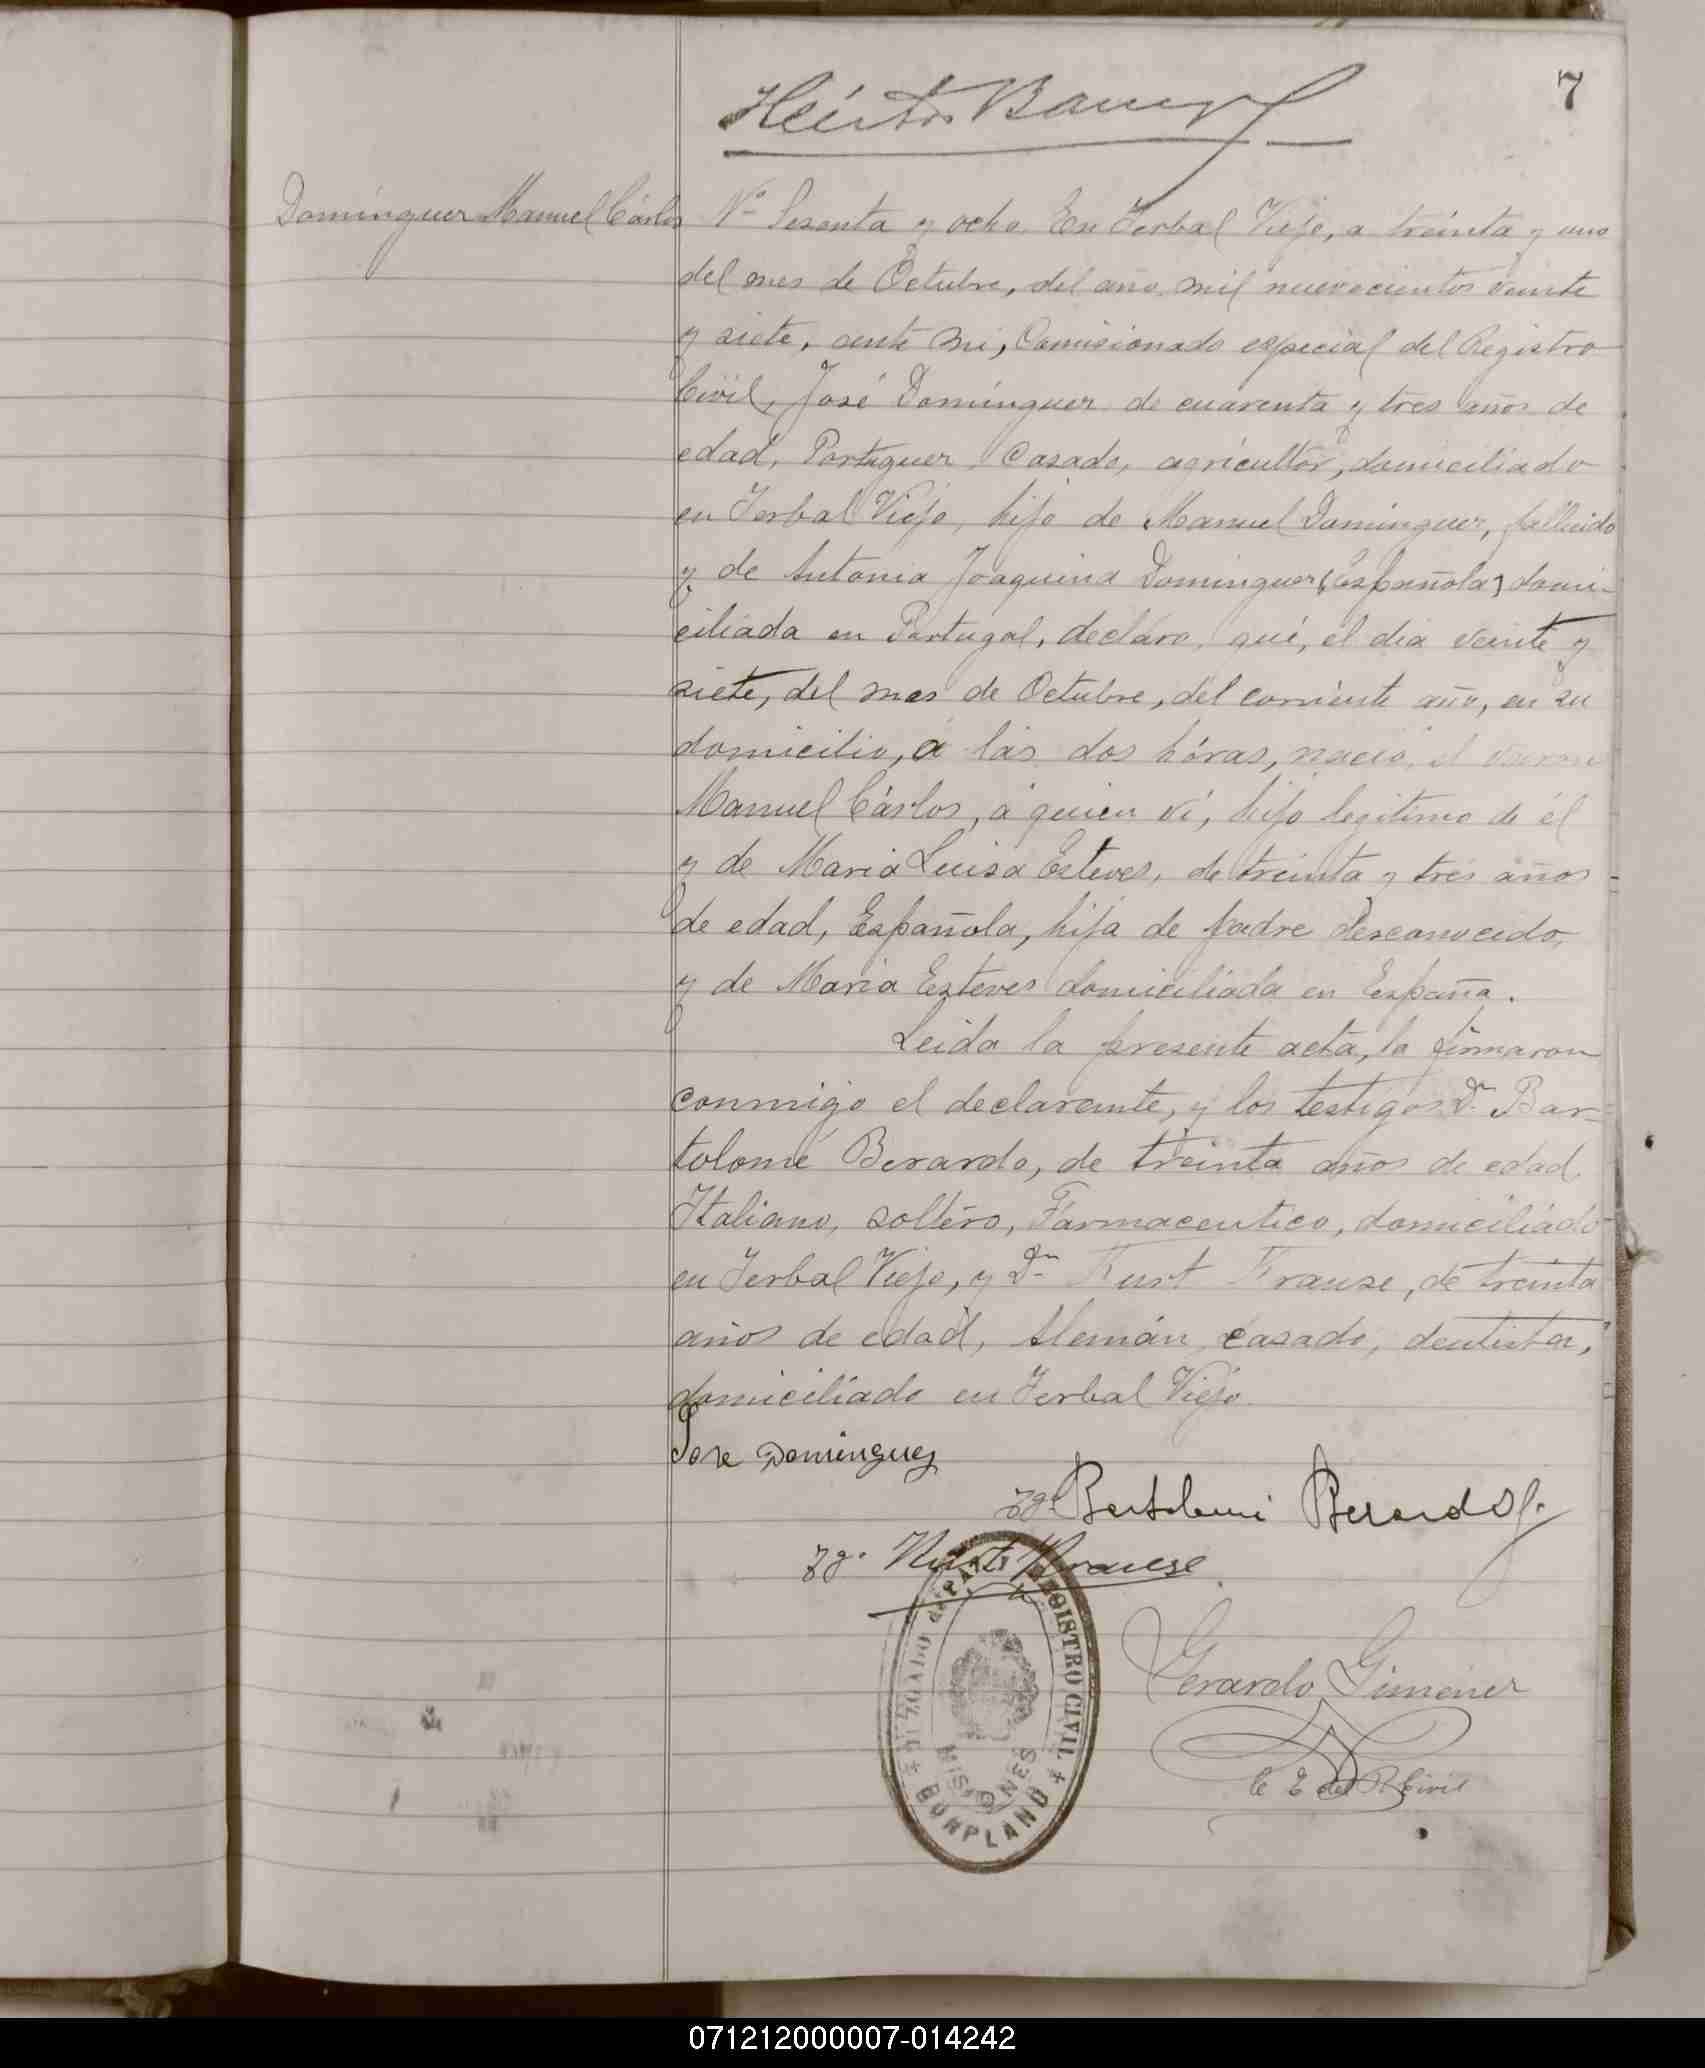 7
Héctor
Domínguez Manuel Cárlos
Nº Sesenta y ocho. En Yerbal Viejo, a treinta y uno
del mes de Octubre, del año mil nuevecientos veinte
y siete, ante mi, Comisionado especial del Registro
Civil, José Domínguez de cuarenta y tres años de
edad, Portuguez, Casado, agricultor, domiciliado
en Yerbal Viejo, hijo de Manuel Domínguez, fallecido
y de Antonia Joaquina Dominguez (Española) domi-
ciliada en Portugal, declaro, qué, el día veinte y
siete, del mes de Octubre, del corriente año, en su
domicilio, á las dos hóras, nació el varon
Manuel Cárlos, á quien ví, hijo legitimo de él
y de María Luisa Esteves, de treinta y tres años
de edad, Española, hija de padre desconocido,
y de María Esteves domiciliada en España.
Leida la presente acta, la firmaron
conmigo el declarante, y los testigos Dn Bar-
tolomé Berardo, de treinta años de edad
Italiano, soltéro, Farmaceutico, domiciliado
en Yerbal Viejo, y Dn Kurt Krause, de treinta
años de edad, Alemán, casado, dentista,
domiciliado en Yerbal Viejo.
Jose Dominguez
Tgo Bartolomé Berardo
Tgo Kurt Krause
JUZGADO de PAZ Y REGISTRO CIVIL
MISIONES
BONPLAND
Gerardo Giménez
C E del R Civil
071212000007-014242